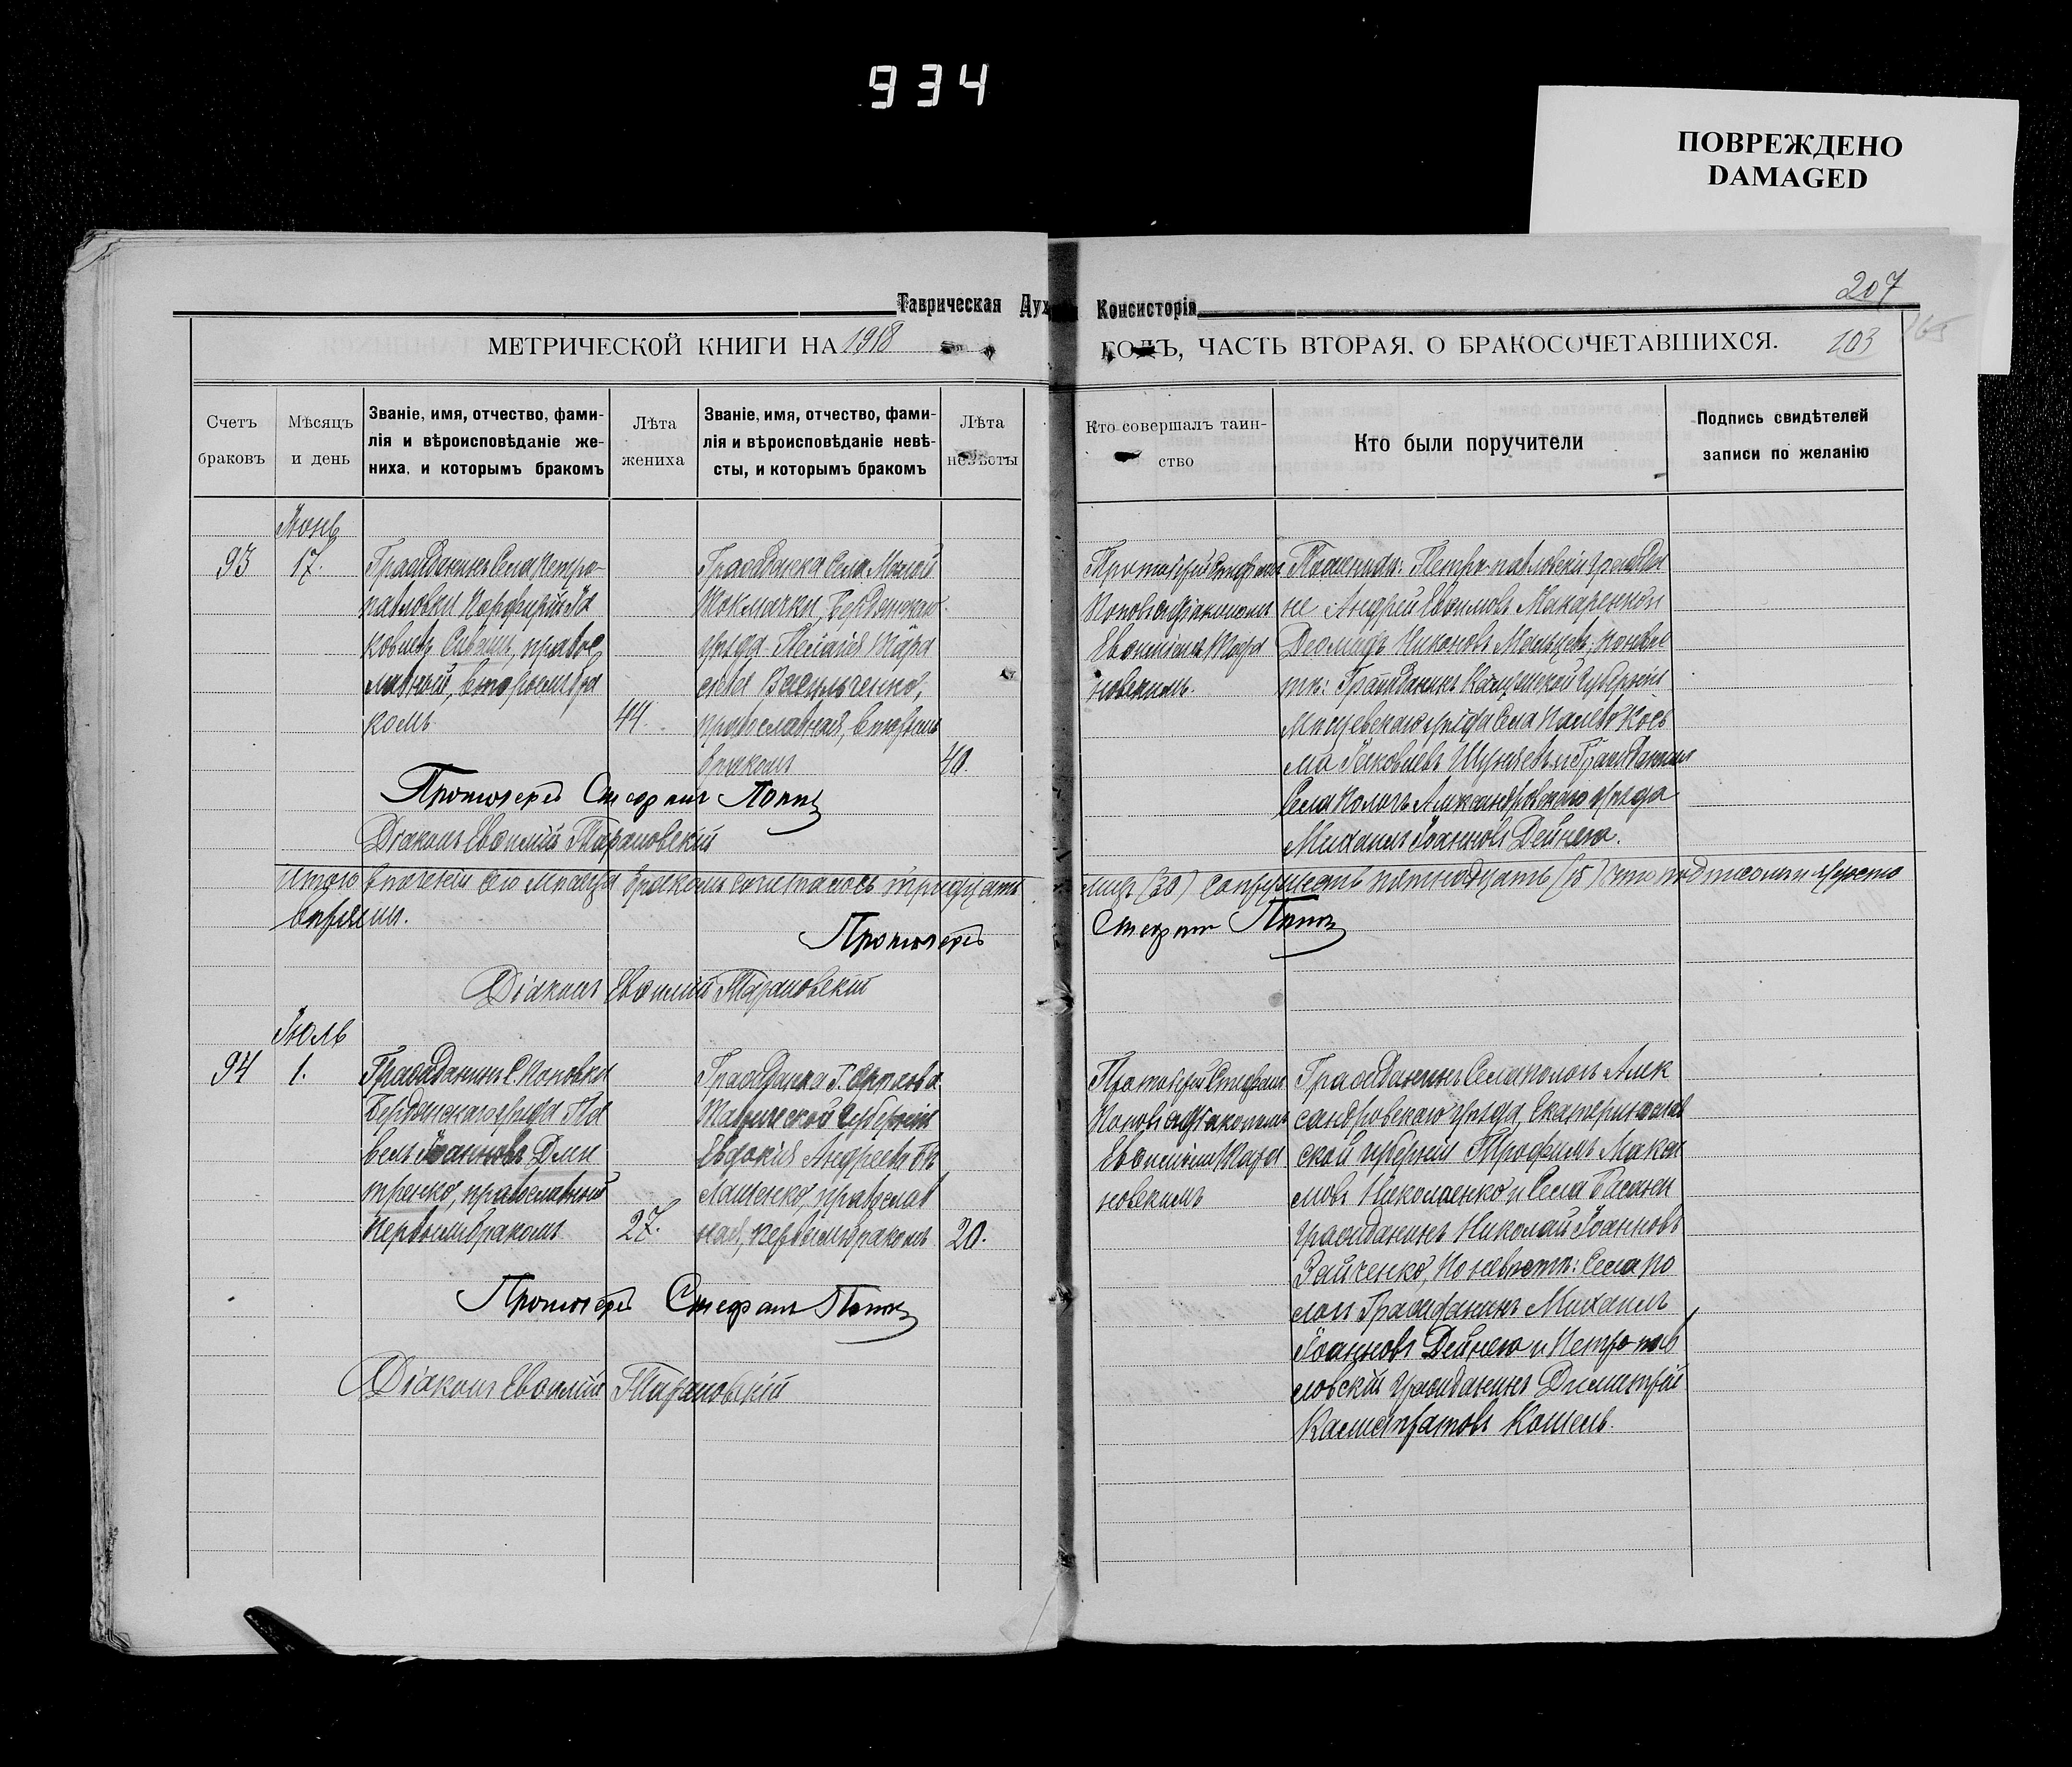 934
ПОВРЕЖДЕНО
DAMAGED
207
Таврическая Дух Консисторія
МЕТРИЧЕСКОЙ КНИГИ НА 1918 ГОДЪ, ЧАСТЬ ВТОРАЯ, О БРАКОСОЧЕТАВШИХСЯ.
103
165
Счетъ
браковъ
Мѣсяцъ
и день
Званіе, имя, отчество, фами-
лія и вѣроисповѣданіе же-
ниха, и которымъ бракомъ
Лѣта
жениха
Званіе, имя, отчество, фами-
лія и вѣроисповѣданіе невѣ-
сты, и которымъ бракомъ
Лѣта
невѣсты
Кто совершалъ таин-
ство
Кто были поручители
Подпись свидѣтелей
записи по желанію
Іюнь
93
17.
Гражданинъ Села Петро-
павловки Порфирій Іа
ковлевъ Сиваш, правос
лавный, вторымъ бра
комъ
44.
Гражданка Села Малой
Токмачки, Бердянскаго
уѣзда Пелагія Тара
сіева Васильченко,
православная, вторымъ
бракомъ
40.
Протоіерей Стефанъ
Поповъ съ діакономъ
Евѳиміемъ Тара
новскимъ.
По женихѣ: Петро-павловскіе гражда
не Андрей Евѳимовъ Макаренко и
Диомидъ Никоновъ Мальцевъ; по невѣс
тѣ: Гражданинъ Калужской Губерніи
Мещевскаго уѣзда Села Палево Кось
ма Іаковлевъ и Гражданинъ
Села Пологъ Александровскаго уѣзда
Михаилъ Іоанновъ Дейнега.
Протоіерей Стефанъ Попов
Діаконъ Евѳимій Тарановскій
Итого въ теченіи сего мѣсяца бракомъ сочеталось тридцать
лицъ (30) супружествъ пятнадцать (15) что подписомъ и удосто
вѣряемъ.
Протоіерей
Стефанъ Попов
Діаконъ Евѳимій Тарановскій
Іюль
94
1.
Гражданинъ С. Поповки
Бердянскаго уѣзда Па
велъ Іоанновъ Дми
тренко, православный
первымъ бракомъ
27.
Гражданка Г. Орѣхова
Таврической Губерніи
Евдокія Андреева Би
лашенко, православ
ная, первымъ бракомъ
20.
Протоіерей Стефанъ
Поповъ съ діакономъ
Евѳиміемъ Тара
новскимъ
Гражданинъ Села Пологъ Алек
сандровскаго уѣзда, Екатеринослав
ской губерніи Трофимъ Макси
мовъ Николаенко и Села Басани
гражданинъ Николай Іоанновъ
Зайченко, по невѣстѣ: Села По
логъ Гражданинъ Михаилъ
Іоанновъ Дейнега и Петро-пав
ловскій гражданинъ Димитрій
Калистратовъ Кошель.
Протоіерей Стефанъ Попов
Діаконъ Евѳимій Тарановскій